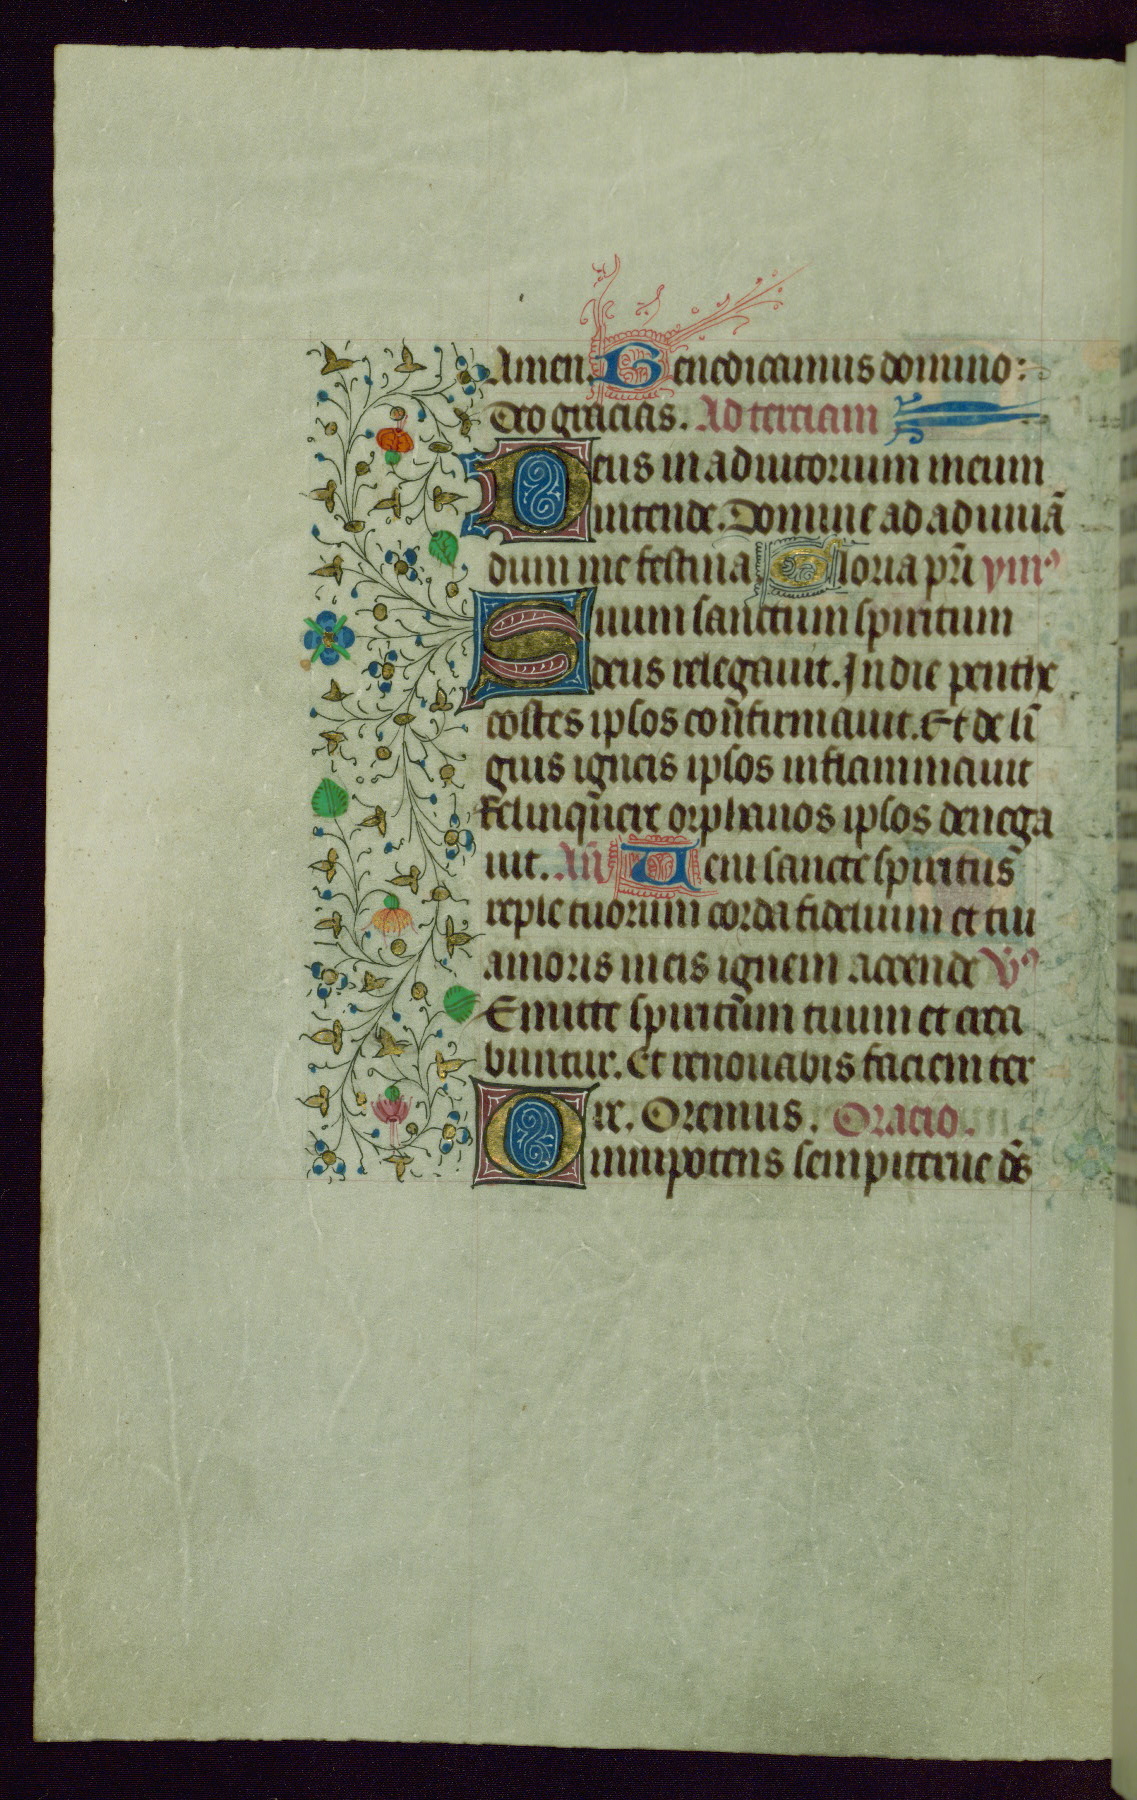 Amen. Benedicamus domino:
Deo gracias. Ad terciam
Deus in adiutorium meum
intende. Domine ad adiuuã
dum me festina. Gloria pr̃i ymꝰ
Suum sanctum spiritum
deus relegauit. In die penthe
costes ipsos coñfirmauit. Et de lĩ
guis igneis ipsos inflammauit
Relinqũere orphanos ipsos denega
uit. Añ Ueni sancte spiritus
reple tuorum corda fidelium et tui
amoris in eis ignem accende Vꝰ
Emitte spirit̃um tuum et crea
buntur. Et renouabis faciem ter
re. Oremus. Oracio.
Omnipotens sempiterne d̃s